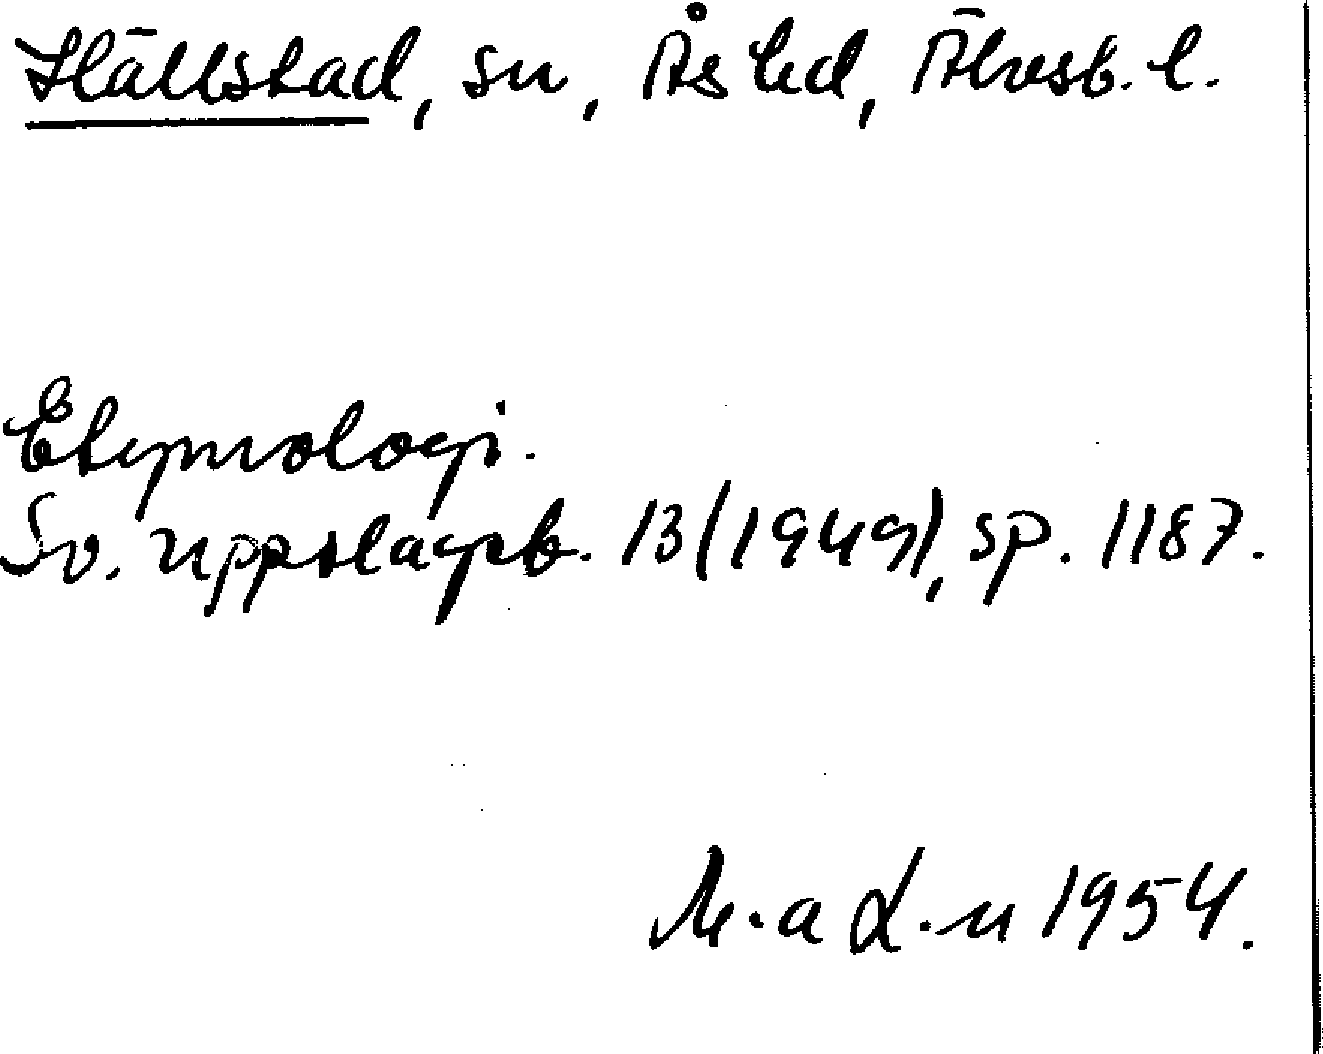 Hällstad, sn, Ås hd, Älvsb. l.
Etymologi.
Sv. uppslagsb. 13 (1949), sp. 1187.
M. a L. n 1954.